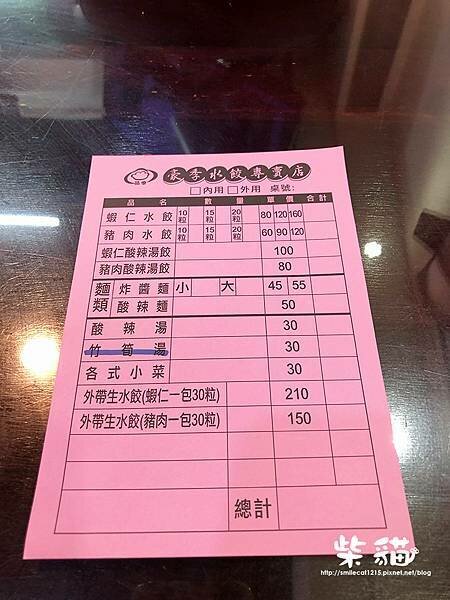 豪季水餃專賣店
□內用 □外用 桌號:
品名 數量 單價 合計
蝦仁水餃 10粒 15粒 20粒 80 120 160
豬肉水餃 10粒 15粒 20粒 60 90 120
蝦仁酸辣湯餃 100
豬肉酸辣湯餃 80
麵類 炸醬麵 小 大 45 55
酸辣麵 50
酸辣湯 30
竹筍湯 30
各式小菜 30
外帶生水餃(蝦仁一包30粒) 210
外帶生水餃(豬肉一包30粒) 150
總計
柴貓
http://smilecat1215.pixnet.net/blog